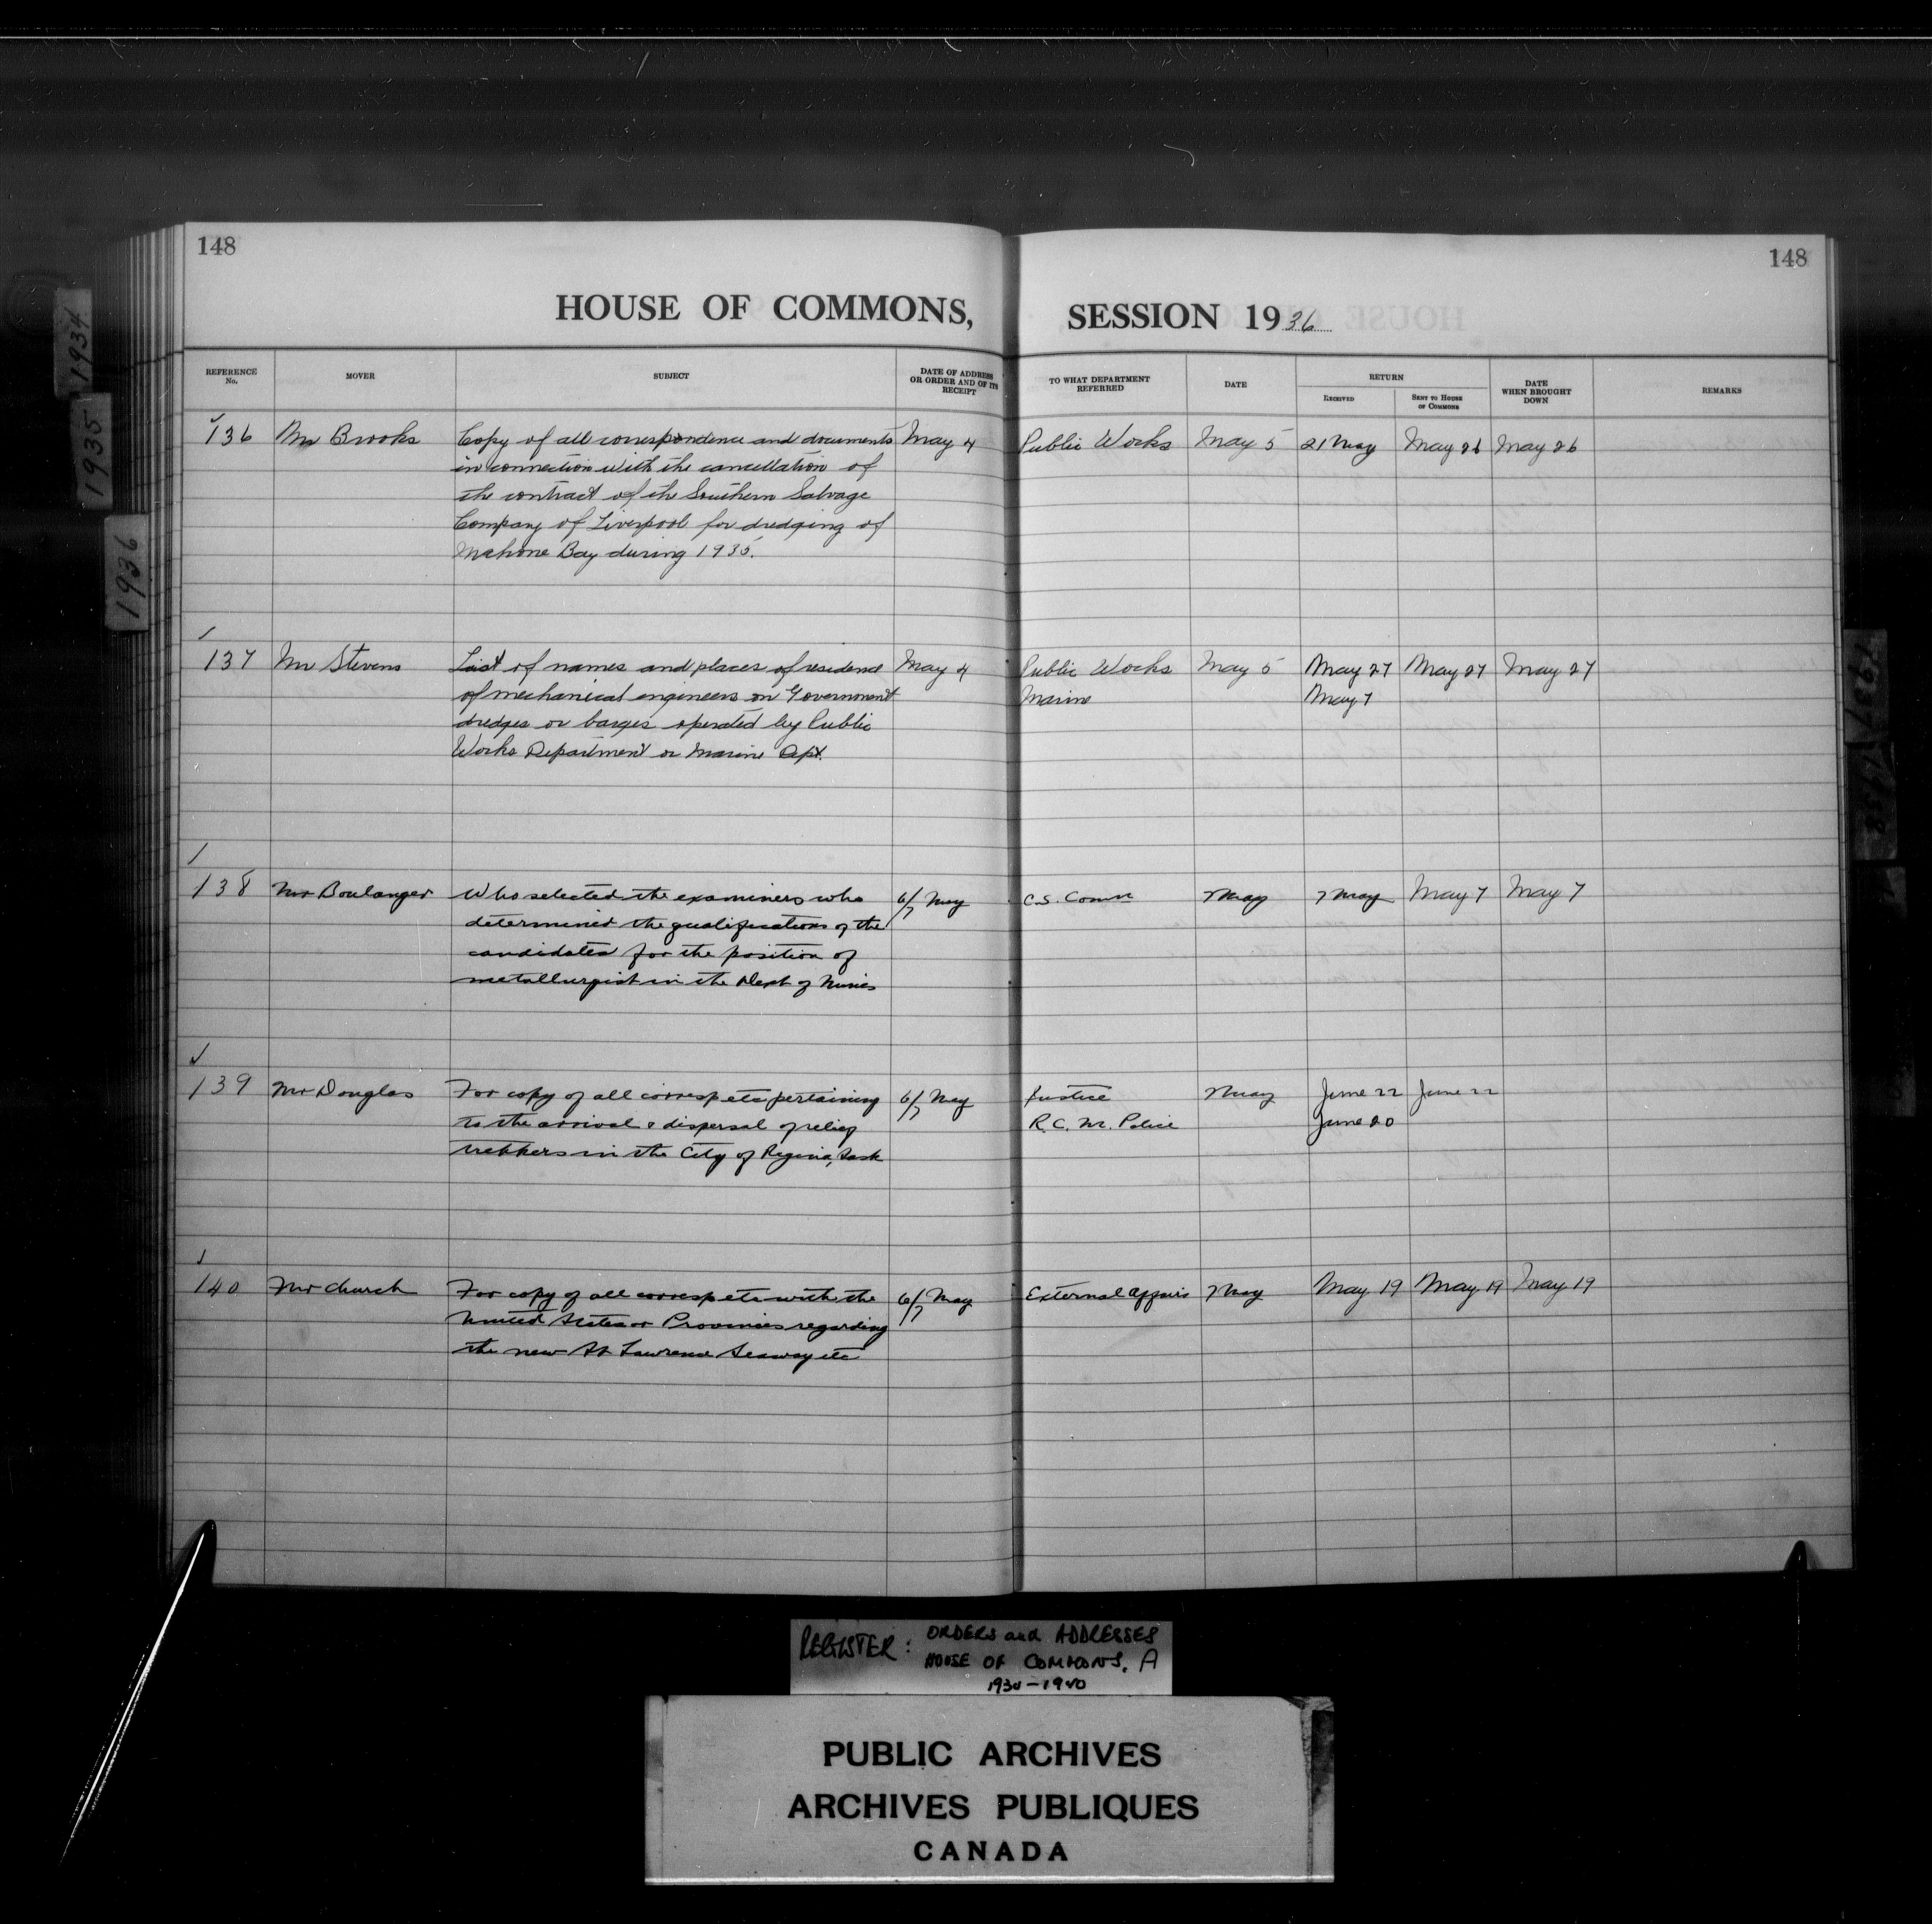 148
148
HOUSE OF COMMONS, SESSION 1936
REFERENCE No.
MOVER
SUBJECT
DATE OF ADDRESS OR ORDER AND OF ITS RECEIPT
TO WHAT DEPARTMENT REFERRED
DATE
RETURN
RECEIVED
SENT TO HOUSE OF COMMONS
DATE WHEN BROUGHT DOWN
REMARKS
136 Mr Brooks Copy of all correspondence and documents May 4 Public Works May 5 21 May May 26 May 26
in connection with the cancellation of
the contract of the Southern Salvage
Company of Liverpool for dredging of
Mahone Bay during 1935.
137 Mr Stevens List of names and places of residence May 4 Public Works May 5 May 27 May 27 May 27
of mechanical engineers on Government Marine May 7
dredges or barges operated by Public
Works Department or Marine Dept.
138 Mr Boulanger Who selected the examiners who 6/7 May C.S. Comm 7 May 7 May May 7 May 7
determined the qualifications of the
candidates for the position of
metallurgist in the Dept of Mines
139 Mr Douglas For copy of all corresp etc pertaining 6/7 May Justice 7 May June 22 June 22
to the arrival & dispersal of relief R.C.M. Police June 20
trekkers in the City of Regina, Sask
140 Mr Church For copy of all corresp etc with the 6/7 May External Affairs 7 May May 19 May 19 May 19
United States or Provinces regarding
the new St Lawrence Seaway etc
1934
1935
1936
1937
REGISTER: ORDERS and ADDRESSES
HOUSE OF COMMONS, A
PUBLIC ARCHIVES
ARCHIVES PUBLIQUES
CANADA